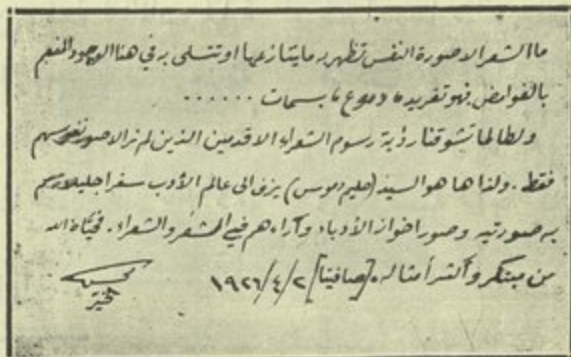 ما الشعر الا صورة النفس تظهر به ما يتنازعها او تتسلى به في هذا الوجود المفعم
بالغوامض فهو تغريد، دموع، بسمات ......
ولطالما تشوقنا رؤية رسوم الشعراء الاقدمين الذين لم نر الا صور نفوسهم
فقط. ولذا ها هو السيد (حليم دموس) يزف الى عالم الأدب سفرا جليلا رسم
به صورتيه وصور اخوانه الأدباء وآراءهم في الشعر والشعراء. فحيّاه الله
من مبتكر وأكثر أمثاله. [صافيتا] ٢/٤/١٩٢٦